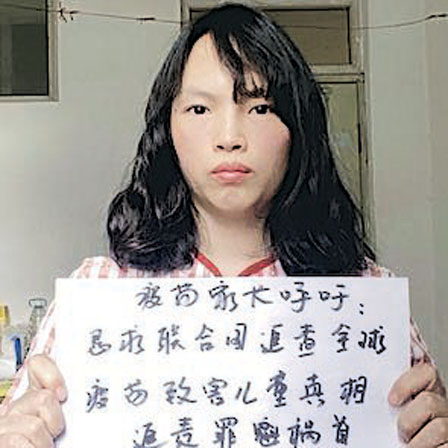 疫苗家长呼吁：
恳求联合国追查全球
疫苗致害儿童真相
追责罪魁祸首